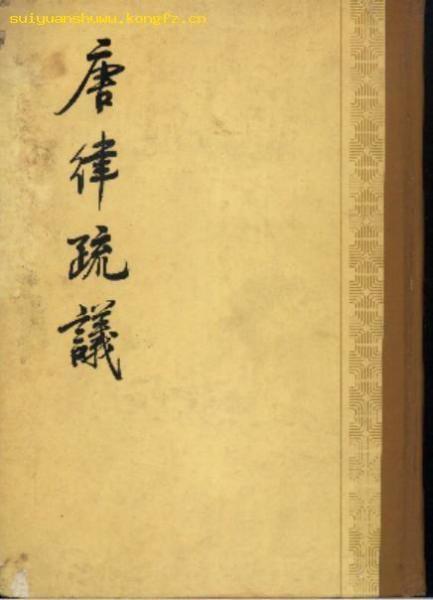 suiyuanshuwu.kongfz.cn
唐律疏議